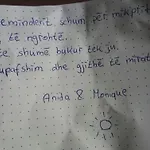 eminderit shum për mikprit
të ngrohtë.
te shumë bukur tek ju.
upafshim dhe gjithë të mirat
Anda & Monique.